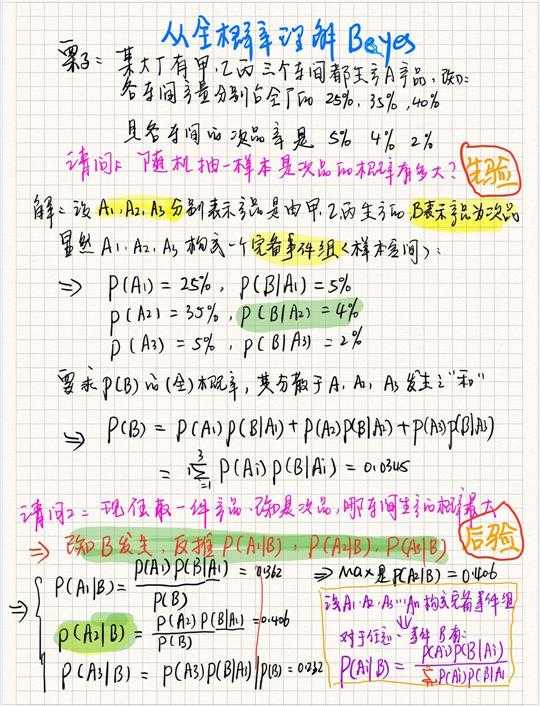 从全概率理解Beyes
栗子: 某大厂有甲.乙丙三个车间都生产A产品,已知:
各车间产量分别占全厂的 25%, 35%, 40%
且各车间的次品率是 5% 4% 2%
请问1: 随机抽一样本是次品的概率有多大? 先验
解: 设 A1, A2, A3 分别表示产品是由甲.乙丙生产的 B表示产品为次品
显然 A1, A2, A3 构成一个完备事件组<样本空间>:
⇒ P(A1) = 25%, P(B|A1) = 5%
P(A2) = 35%, P(B|A2) = 4%
P(A3) = 5%, P(B|A3) = 2%
要求 P(B) 的(全)概率, 其分散于 A1, A2, A3 发生之"和"
⇒ P(B) = P(A1)P(B|A1) + P(A2)P(B|A2) + P(A3)P(B|A3)
= 3∑i=1 P(Ai)P(B|Ai) = 0.0345
请问2: 现任取一件产品.已知是次品,哪车间生产的概率最大 后验
⇒ 已知B发生, 反推 P(A1|B), P(A2|B), P(A3|B)
⇒ P(A1|B) = P(A1)P(B|A1) / P(B) = 0.362
P(A2|B) = P(A2)P(B|A2) / P(B) = 0.406
P(A3|B) = P(A3)P(B|A3) / P(B) = 0.232
⇒ Max是 P(A2|B) = 0.406
设A1.A2.A3...An 构成完备事件组
对于任意一事件B有:
P(Ai|B) = P(Ai)P(B|Ai) / ∑ P(Ai)P(B|Ai)